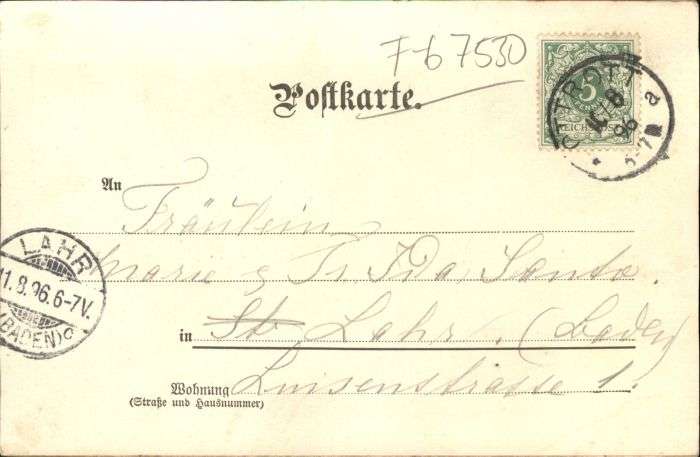 F-b 7530
Postkarte.
5
REICHSPOST
10/8
96
5-7N
a
An Fräulein
Marie & Ida Santo.
LAHR
11.8.96.6-7V.
(BADEN)
in St Lahr. (Baden)
Wohnung Luisenstrasse 1.
(Straße und Hausnummer)